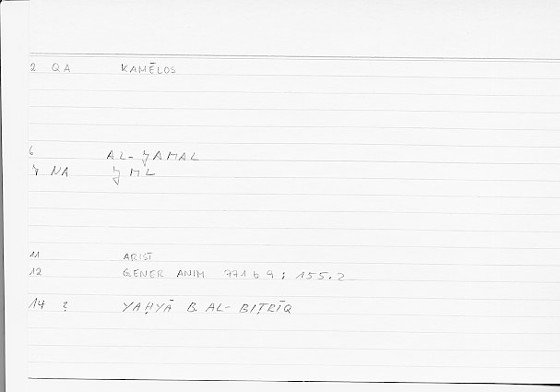 2 QA KAMĒLOS
6 AL-ǦAMAL
7 NA ǦML
11 ARIST
12 GENER ANIM 771 b 9 ; 155.2
14 2 YAḤYĀ B. AL-BIṬRĪQ